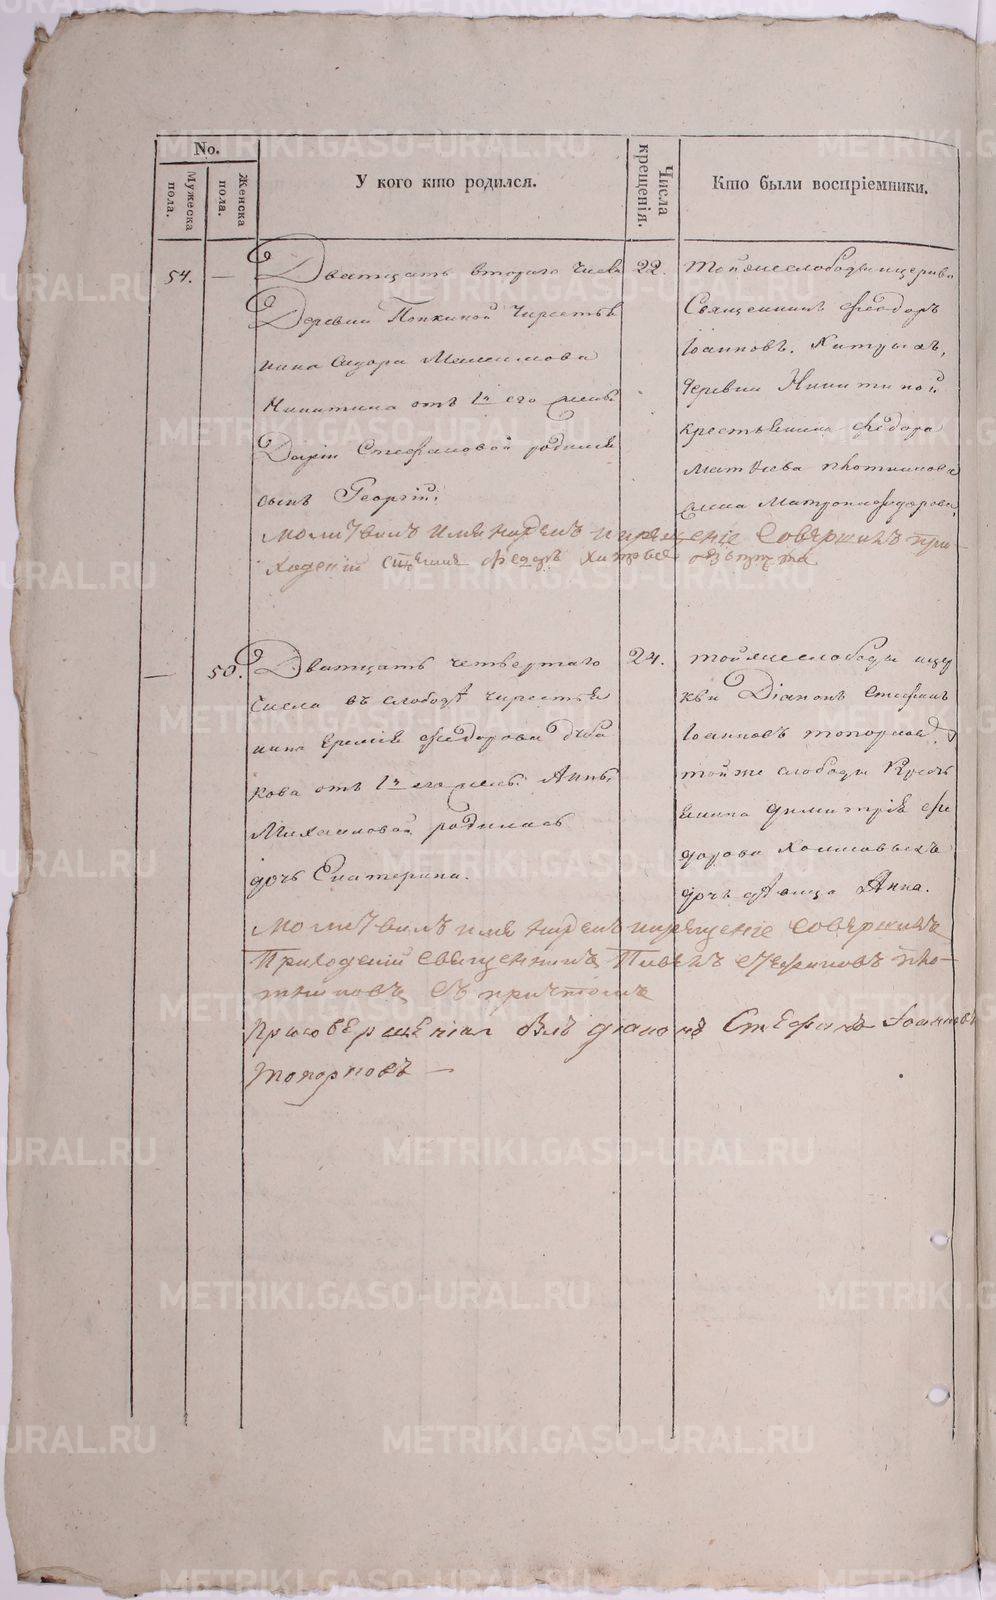 No.
Мужеска пола.
Женска пола.
У кого кто родился.
Числа крещенія.
Кто были воспріемники.
54.
—
Дватцать втораго числа
Деревни Попкиной Чиресть
нина Сидора Максимова
Никитина отъ 1й его жены
Даріи Стефановой родился
сынъ Георгій;
22.
тойже слободы церкви
Священникъ Феодоръ
Іоанновъ. Хитрыхъ,
деревни Никитиной
крестьянина Федора
Матвѣева Плотникова
жена Матрона Федорова,
молитвилъ имя нареклъ и крещеніе совершилъ при-
ходскій сщенникъ Федоръ Хитрыхъ
—
50.
Дватцать четвертаго
числа въ слободѣ Чирестья
нина Еремѣя Федорова
кова отъ 1й его жены Анны
Михаиловой родилась
дочь Екатерина.
24.
тойже слободы цер
кви Діаконъ Стефанъ
Іоанновъ Топорковъ,
тойже слободы Крест
янина Димитрія Фе
дорова
дочь дѣвица Анна.
молитвилъ имя нареклъ и крещеніе совершилъ
Приходскій священникъ Павелъ Стефановъ Пло-
тниковъ съ причтомъ
При совершеніи былъ діаконъ Стефанъ Іоанновъ
Топорковъ —
METRIKI.GASO-URAL.RU